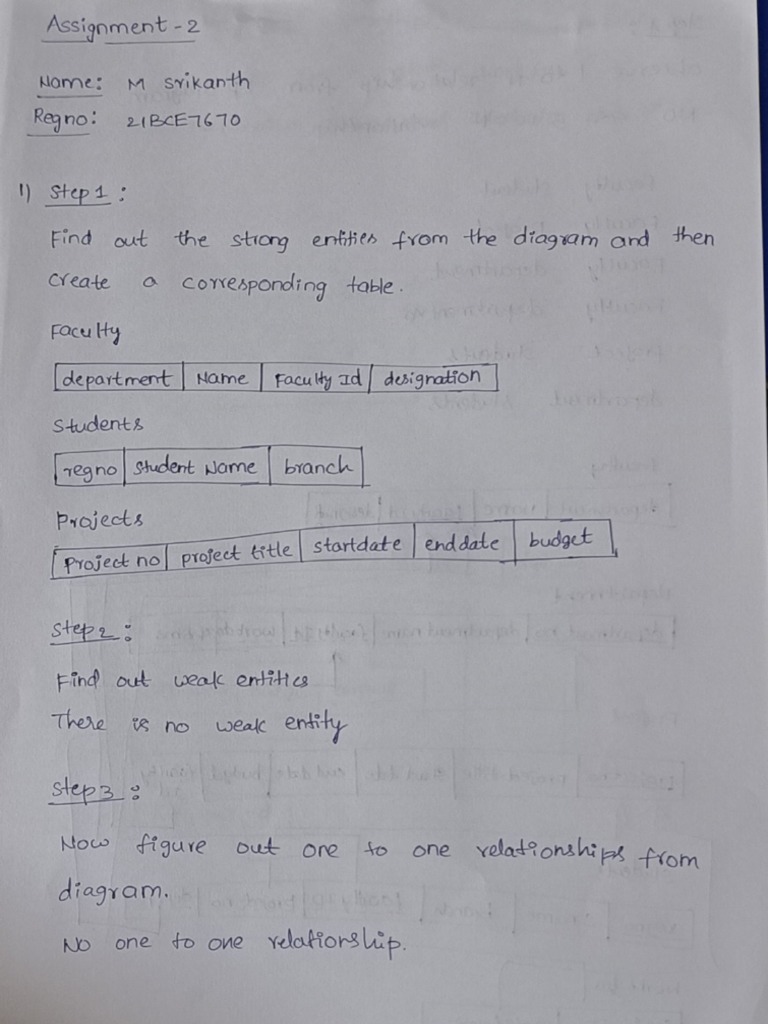 Assignment - 2
Name: M Srikanth
Regno: 21BCE7670
1) Step 1 :
Find out the strong entities from the diagram and then
create a corresponding table.
Faculty
department | Name | Faculty Id | designation
Students
regno | Student Name | branch
Projects
Project no | project title | startdate | enddate | budget
Step 2 :
Find out weak entities
There is no weak entity
Step 3 :
Now figure out one to one relationships from
diagram.
No one to one relationship.